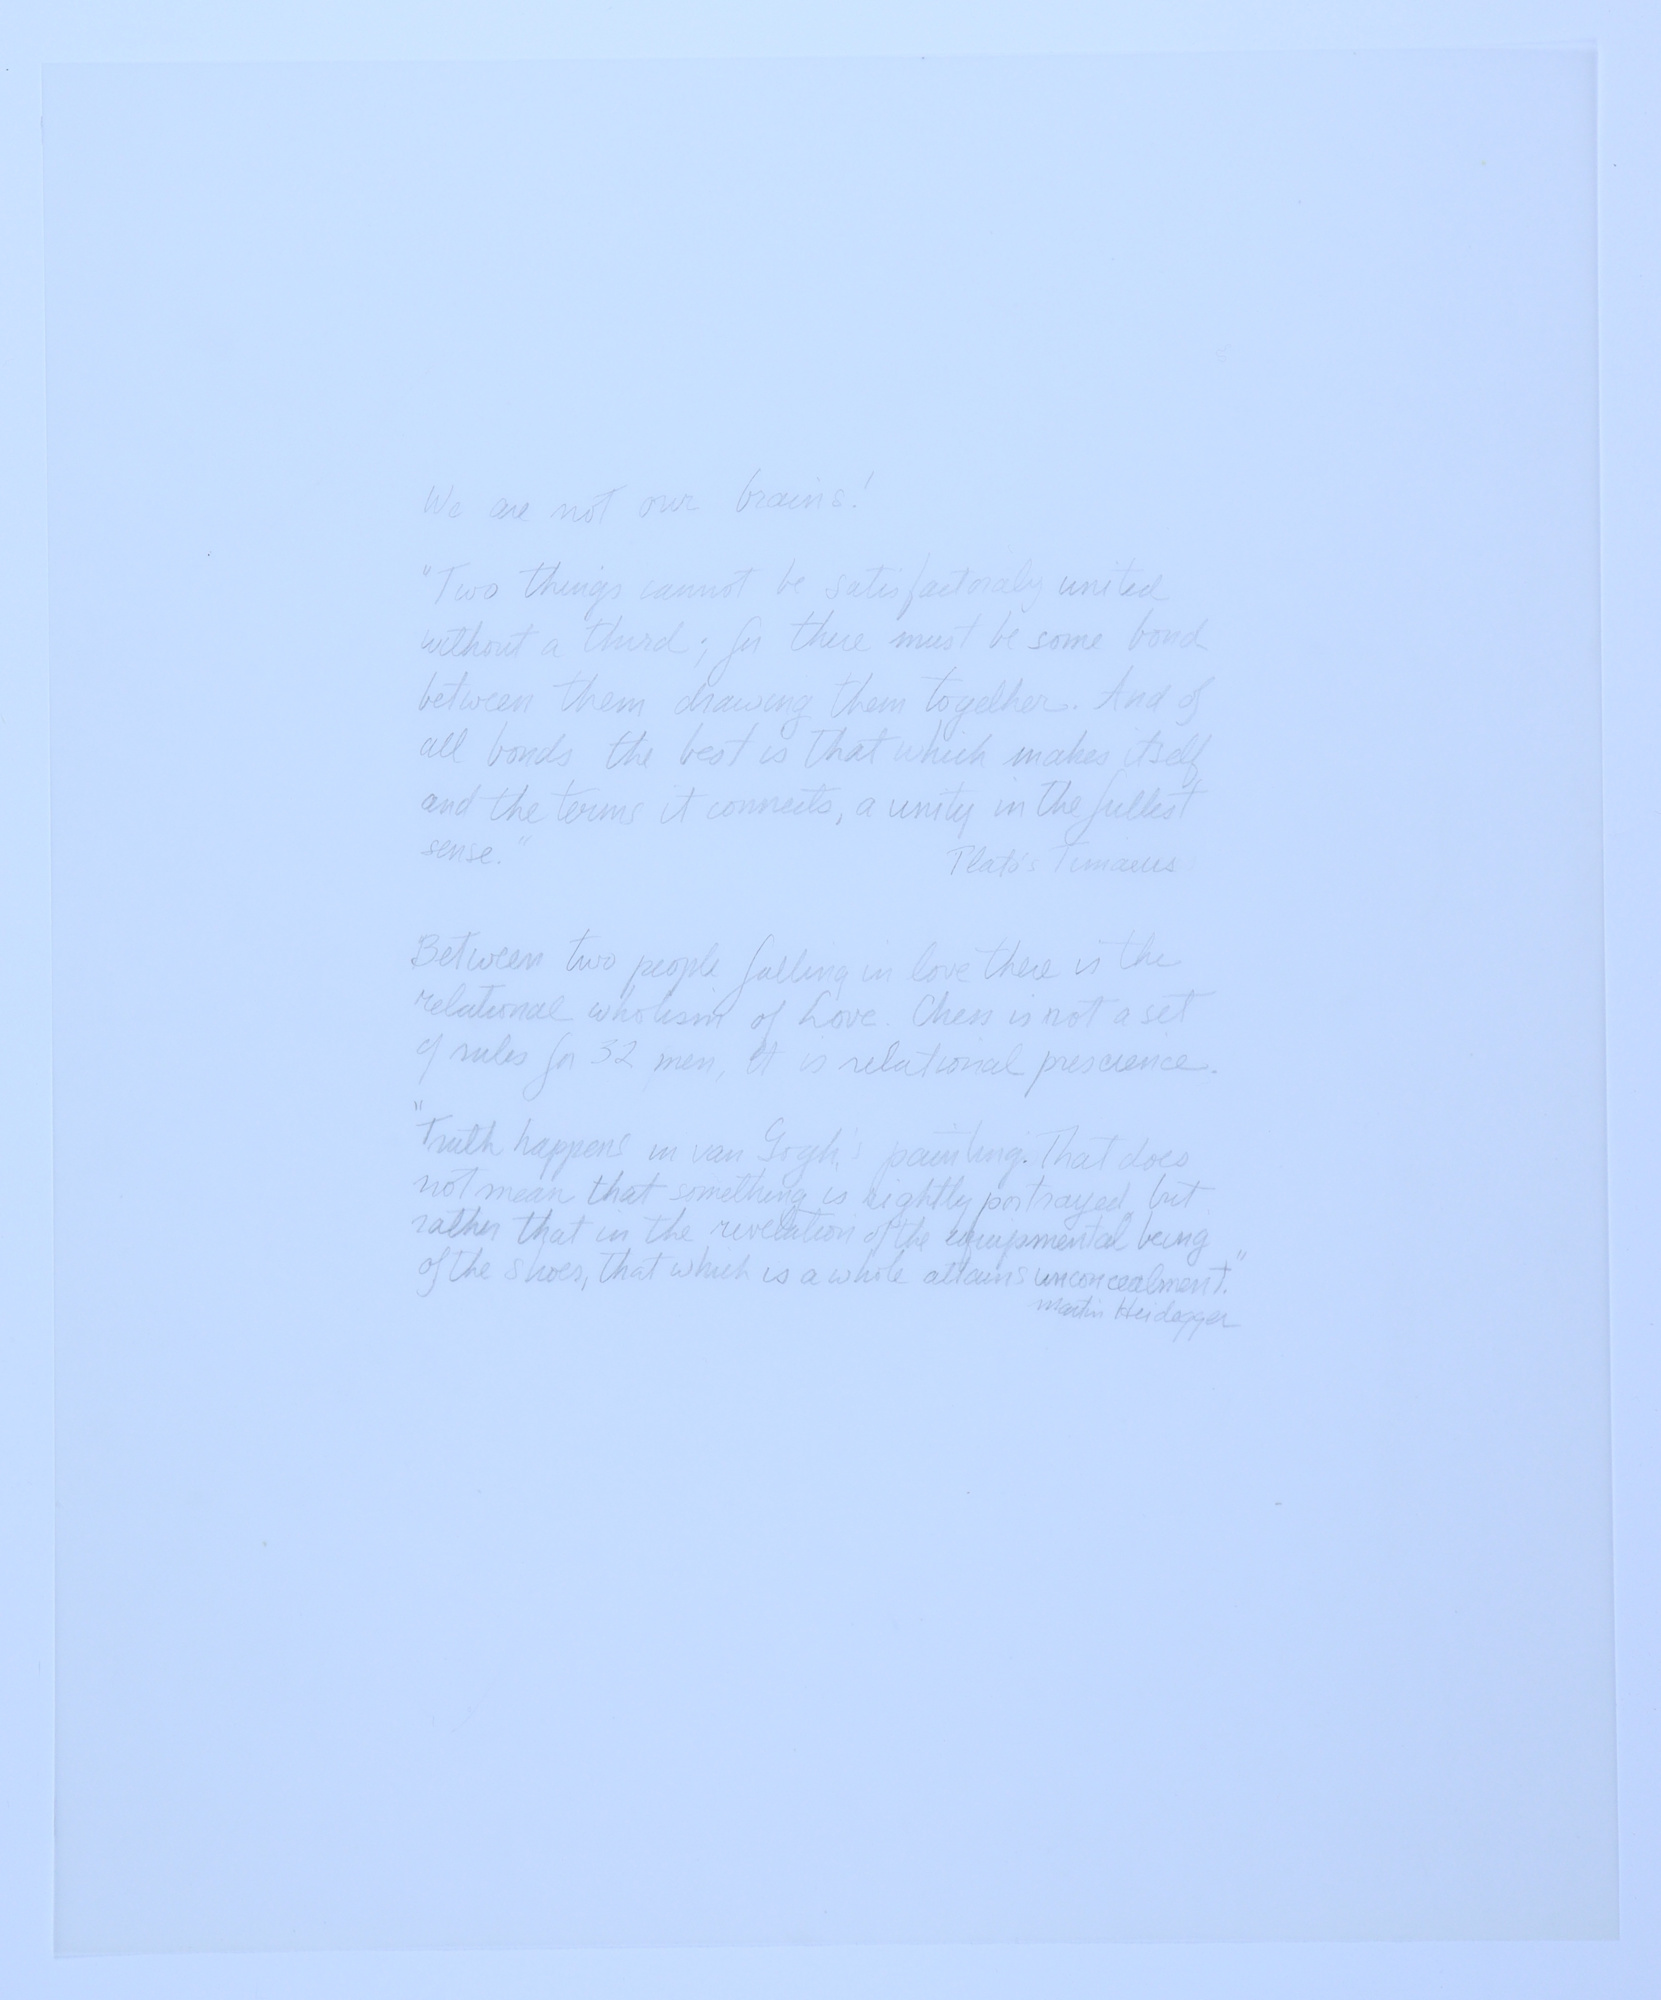 We are not our brains!
"Two things cannot be satisfactoraly united
without a third; for there must be some bond
between them drawing them together. And of
all bonds the best is that which makes itself
and the terms it connects, a unity in the fullest
sense."
Plato's Timaeus
Between two people falling in love there is the
relational wholism of Love. Chess is not a set
of rules for 32 men, it is relational prescience.
"Truth happens in van Gogh's painting. That does
not mean that something is rightly portrayed, but
rather that in the revelation of the equipmental being
of the shoes, that which is a whole attains unconcealment."
Martin Heidegger